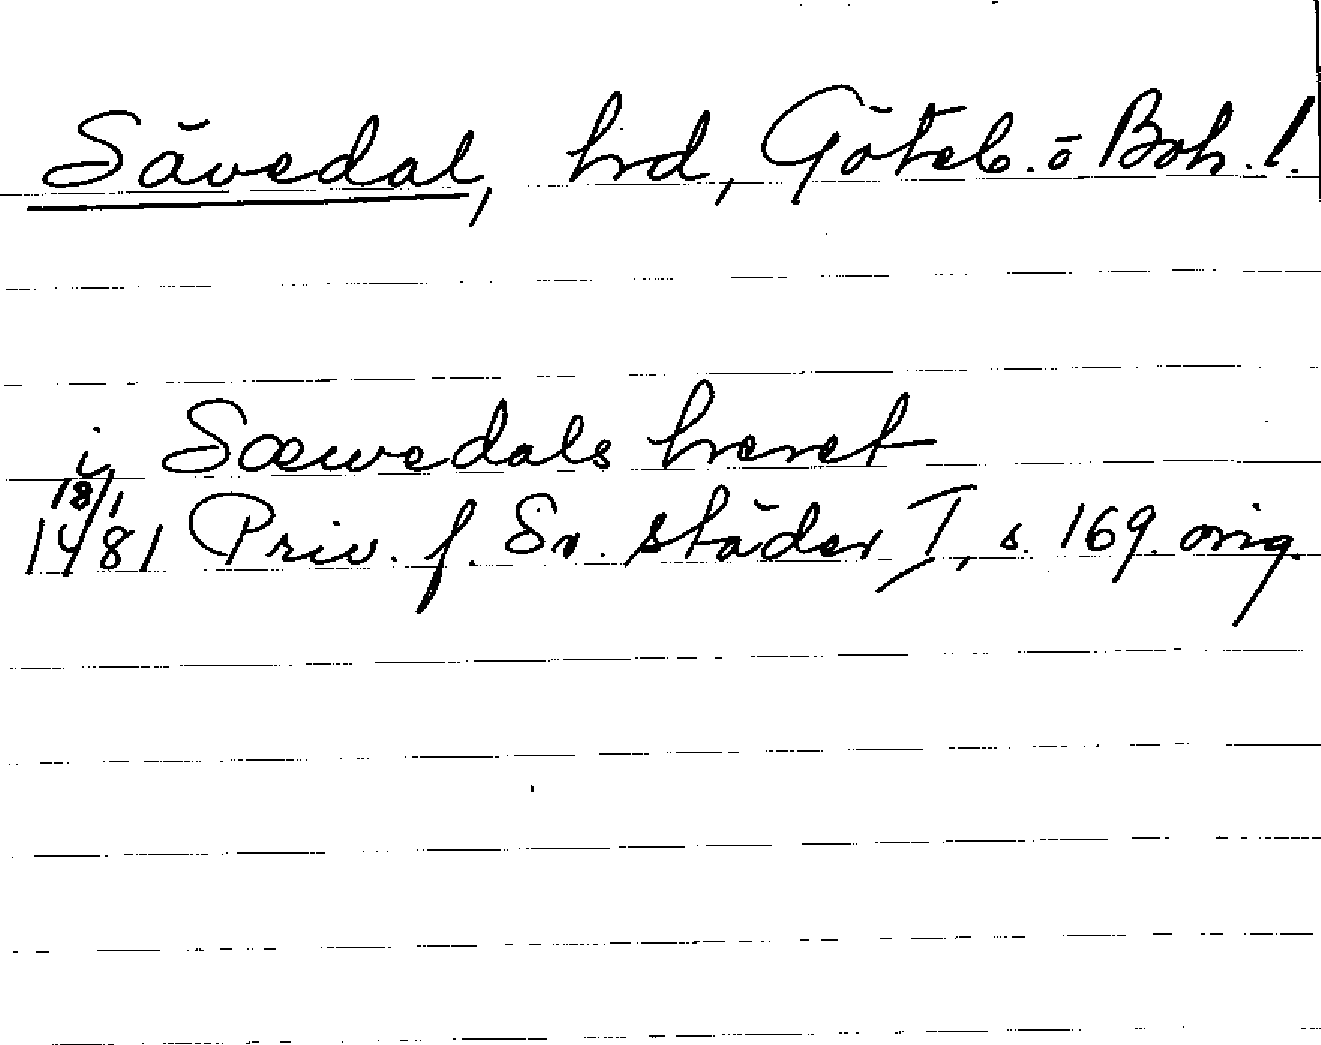 Sävedal, hrd, Göteb. o Boh. l.
i Sæwedals hæret
18/1 1481 Priv. f. Sv. städer I, s. 169. orig